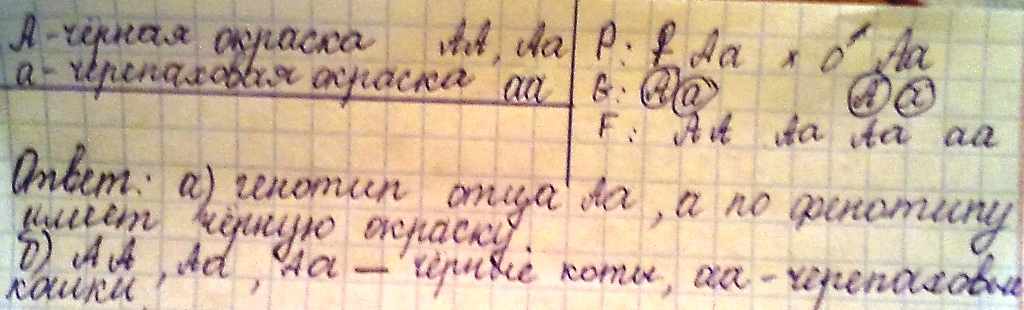 А-чёрная окраска АА, Аа
а-черепаховая окраска аа
Р: ♀ Аа х ♂ Аа
G: А а А а
F: АА Аа Аа аа
Ответ: а) генотип отца Аа, а по фенотипу
имеет чёрную окраску.
б) АА, Аа, Аа — чёрные коты, аа - черепаховые
кошки.